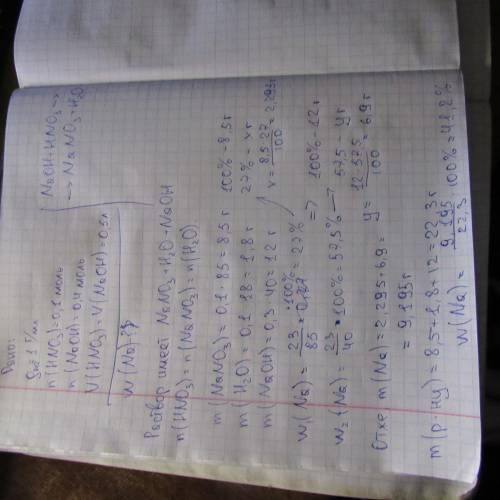 Дано:
n(HNO₃)=0,1 моль
n(NaOH)=0,4 моль
V(HNO₃)=V(NaOH)=0,5л
W(Na)-?
NaOH+HNO₃→
→NaNO₃+H₂O
Раствор имеет NaNO₃+H₂O+NaOH
n(HNO₃)=n(NaNO₃)=n(H₂O)
m(NaNO₃)=0,1·85=8,5г 100%-8,5г
m(H₂O)=0,1·18=1,8г 27%-xг
m(NaOH)=0,3·40=12г x=8,5·27/100=2,295г
W₁(Na)=23/85·100%=27% => 100%-12г
W₂(Na)=23/40·100%=57,5% 57,5 yг
y=12·57,5/100=6,9г
m(Na)=2,295+6,9=
=9,195г
m(р-ну)=8,5+1,8+12=22,3г
W(Na)=9,195/22,3 100%=41,2%